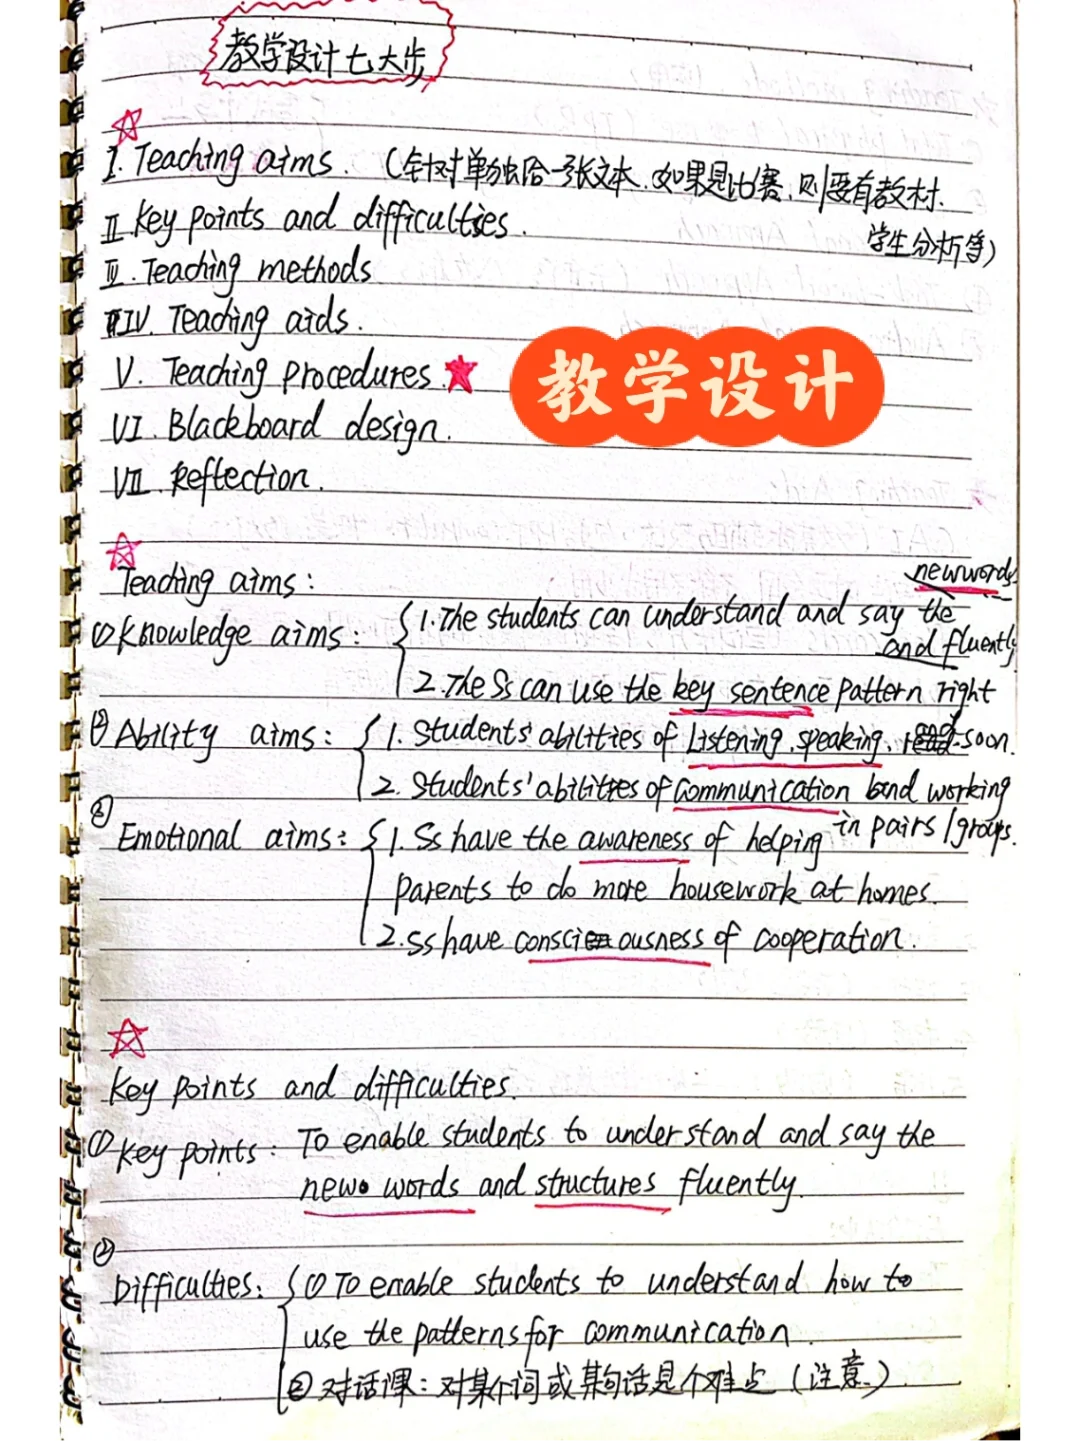 教学设计七大步
I. Teaching aims. (针对单独给一张文本.如果是比赛.则要有教材.
学生分析等)
II Key points and difficulties.
III. Teaching methods
IV. Teaching aids.
教学设计
V. Teaching procedures.
VI. Blackboard design.
VII. Reflection.
Teaching aims:
new words
① Knowledge aims: 1. The students can understand and say the
and fluently
2. The Ss can use the key sentence pattern right
② Ability aims: 1. Students' abilities of Listening, speaking, soon.
2. Students' abilities of communication and working
in pairs/groups.
Emotional aims: 1. Ss have the awareness of helping
parents to do more housework at homes.
2. Ss have consciousness of cooperation.
Key points and difficulties.
① Key points: To enable students to understand and say the
new words and structures fluently.
②
Difficulties: ① To enable students to understand how to
use the patterns for communication.
② 对话课:对某个词或某句话是个难点(注意.)